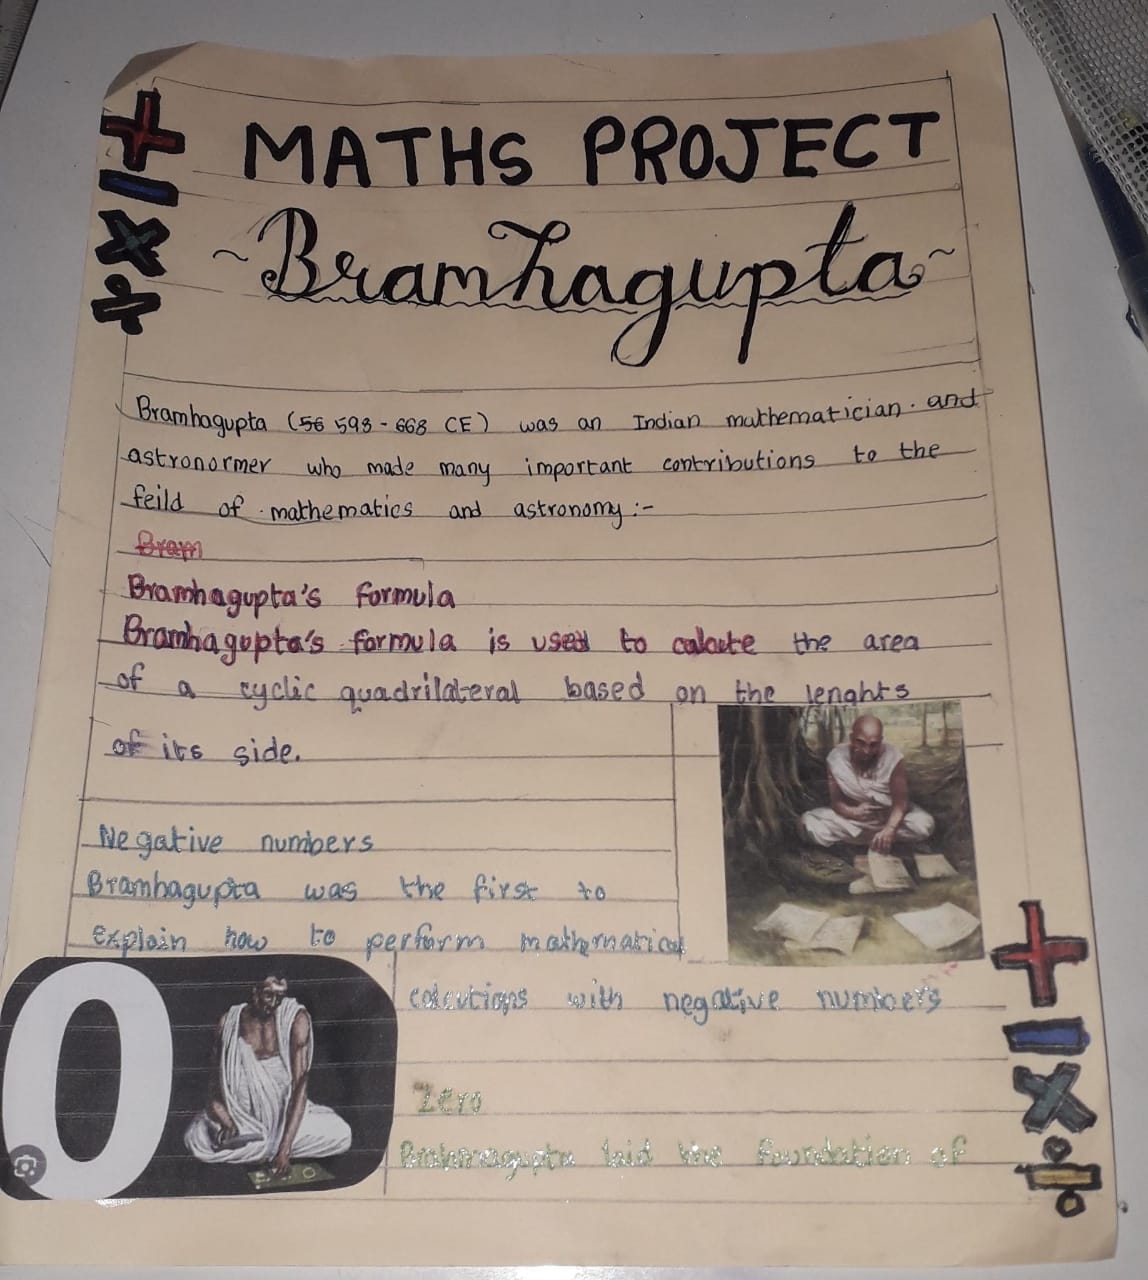 MATHS PROJECT
~Bramhagupta~
Bramhagupta (56 598 - 668 CE) was an Indian mathematician. and
astronormer who made many important contributions to the
feild of mathematics and astronomy:-
Bram
Bramhagupta's formula
Bramhagupta's formula is used to calacte the area
of a cyclic quadrilateral based on the lenghts
of its side.
Negative numbers
Bramhagupta was the first to
explain how to perform mathematical
calcutions with negative numbers
0
Zero
Brahmagupta laid the foundation of